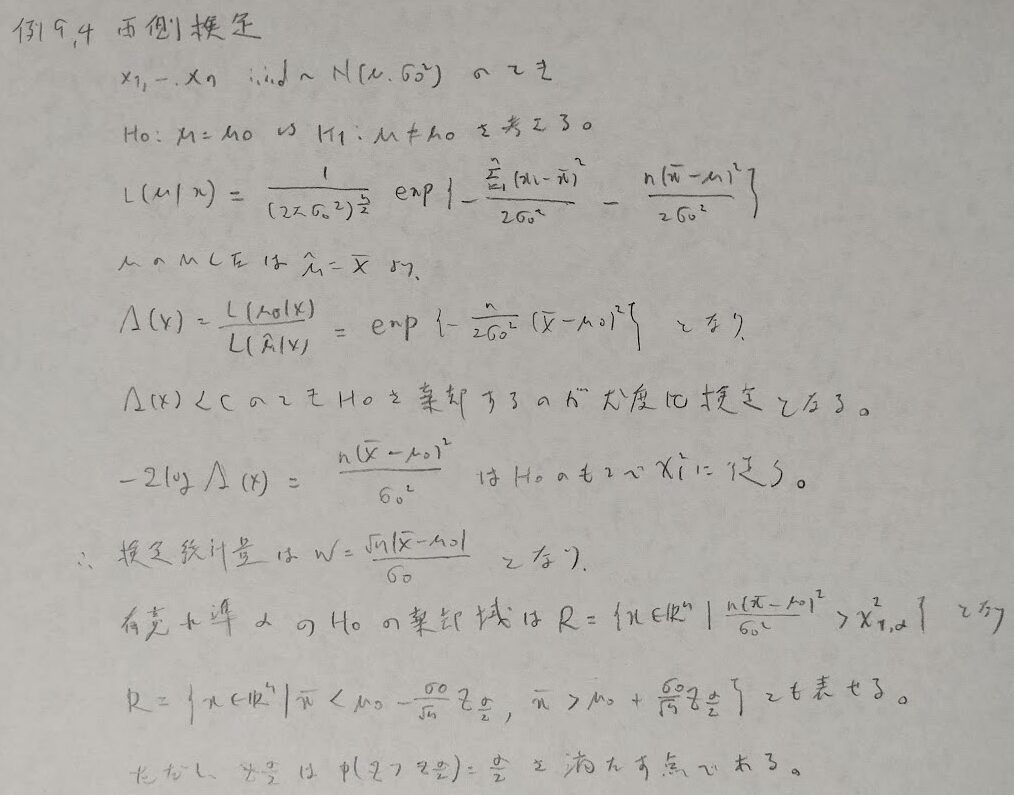 例9.4 両側検定
X₁, … Xₙ i.i.d ~ N(μ, σ₀²) のとき
H₀: μ = μ₀ vs H₁: μ ≠ μ₀ を考える。
L(μ|x) = 1/(2πσ₀²)^{n/2} exp{ -Σ_{i=1}^{n}(xᵢ - x̄)²/2σ₀² - n(x̄ - μ)²/2σ₀² }
μのMLEは μ̂ = X̄ より、
Λ(X) = L(μ₀|X)/L(μ̂|X) = exp{ -n/2σ₀² (X̄ - μ₀)² } となり、
Λ(X) < C のとき H₀ を棄却するのが尤度比検定となる。
-2log Λ(X) = n(X̄ - μ₀)²/σ₀² は H₀ のもとで χ₁² に従う。
∴ 検定統計量は W = √n|X̄ - μ₀|/σ₀ となり、
有意水準 α の H₀ の棄却域は R = { x∈ℝⁿ | n(x̄ - μ₀)²/σ₀² > χ²_{1,α} } となり
R = { x∈ℝⁿ | x̄ < μ₀ - σ₀/√n z_{α/2}, x̄ > μ₀ + σ₀/√n z_{α/2} } とも表せる。
ただし、z_{α/2} は P(Z > z_{α/2}) = α/2 を満たす点である。